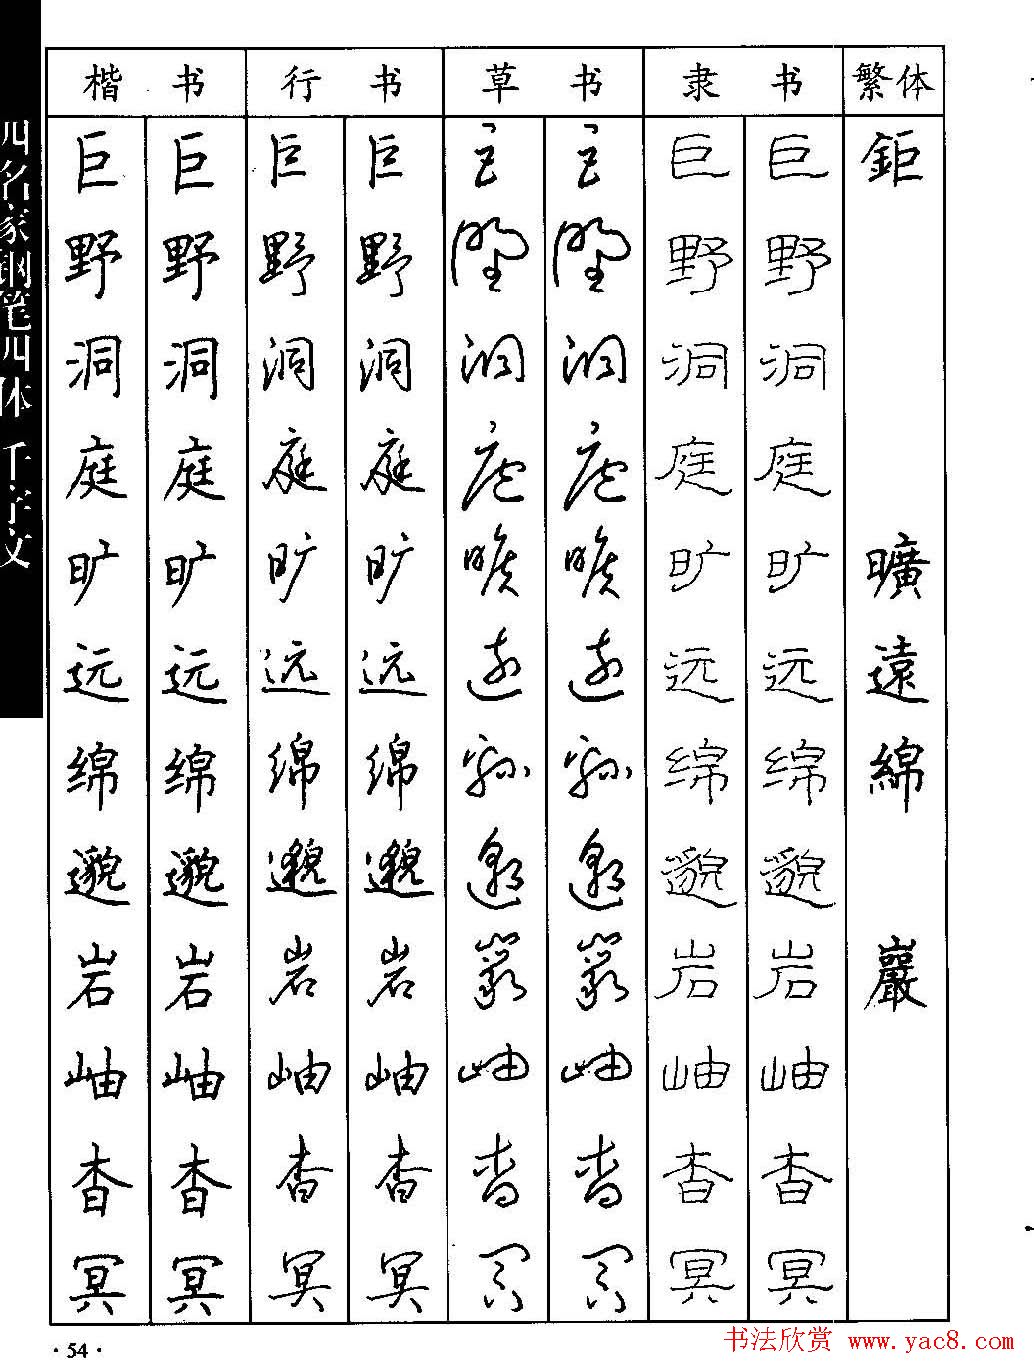 四名家钢笔四体 千字文
楷书 行书 草书 隶书 繁体
巨 巨 巨 巨 巨 巨 巨 巨 鉅
野 野 野 野 野 野 野 野
洞 洞 洞 洞 洞 洞 洞 洞
庭 庭 庭 庭 庭 庭 庭 庭
旷 旷 旷 旷 曠 曠 旷 旷 曠
远 远 远 远 遠 遠 远 远 遠
绵 绵 绵 绵 綿 綿 绵 绵 綿
邈 邈 邈 邈 邈 邈 邈 邈
岩 岩 岩 岩 巖 巖 岩 岩 巖
岫 岫 岫 岫 岫 岫 岫 岫
杳 杳 杳 杳 杳 杳 杳 杳
冥 冥 冥 冥 冥 冥 冥 冥
·54·
书法欣赏 www.yac8.com